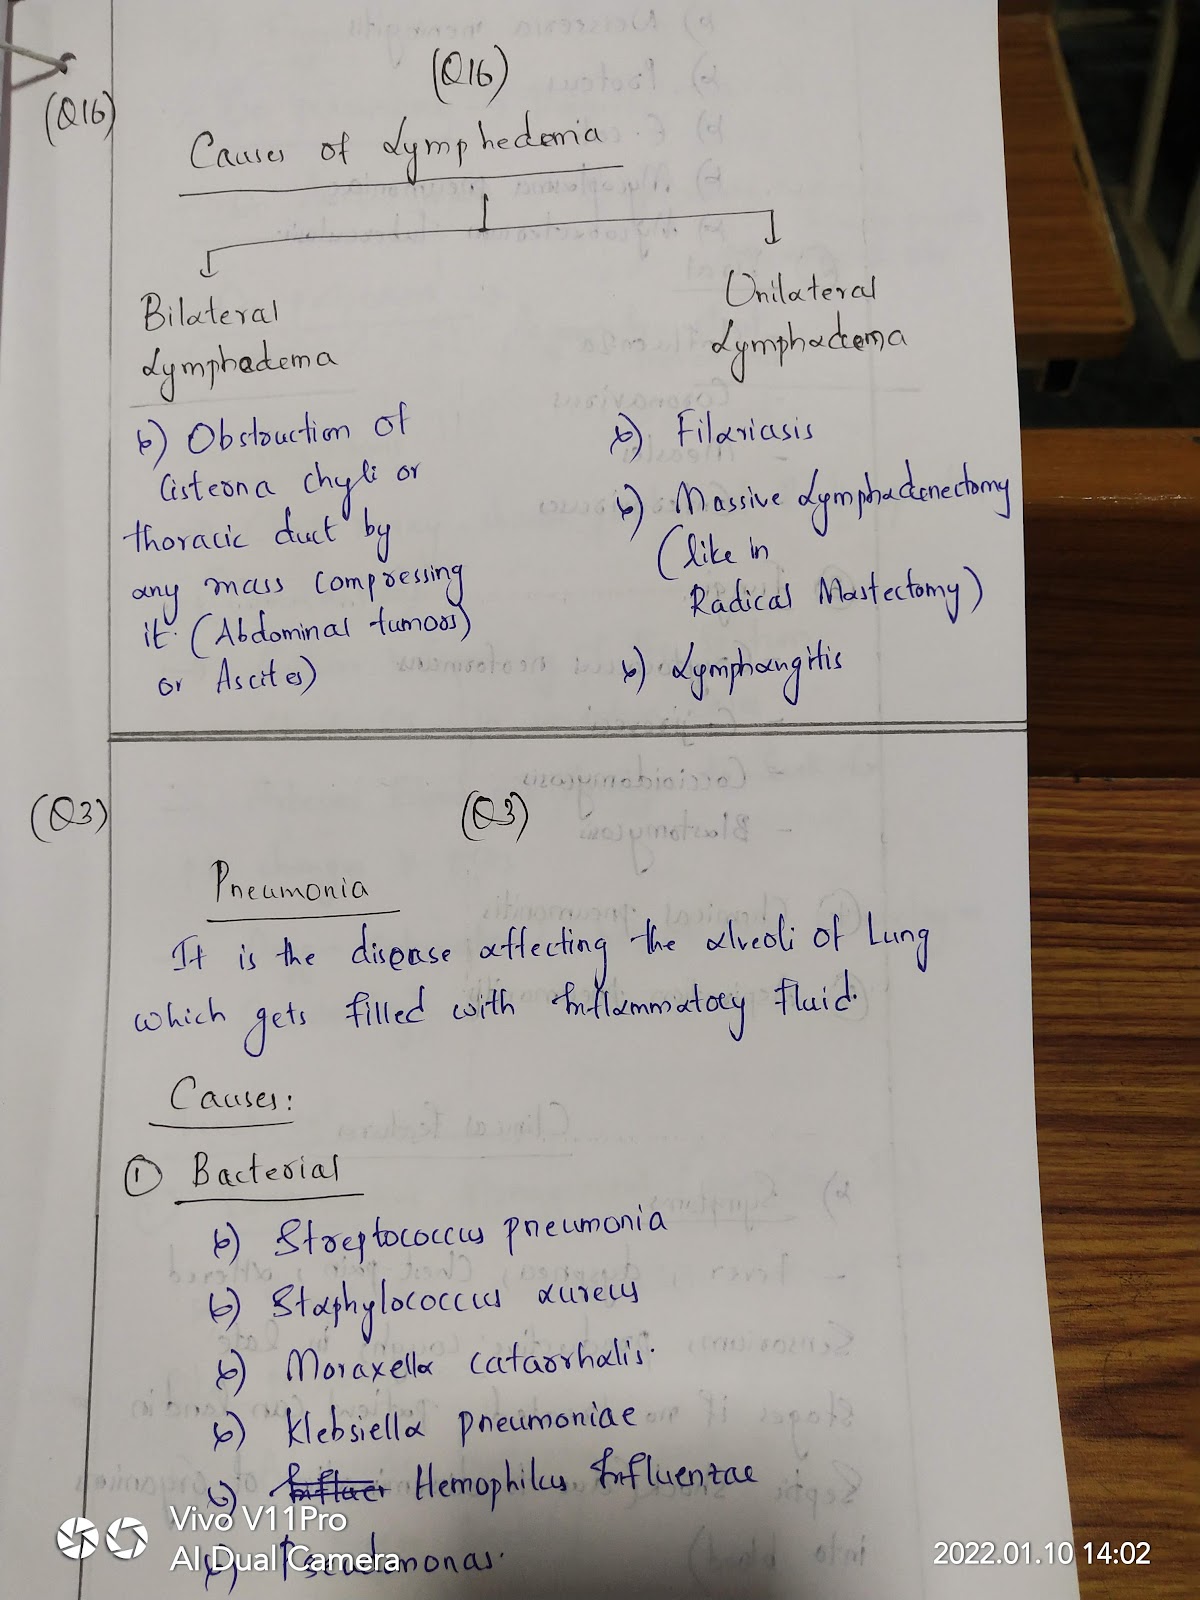 (Q16)
(Q16)
Causes of Lymphedemia
Bilateral
Lymphedema
Unilateral
Lymphadema
Obstruction of
Cisterna chyli or
thoracic duct by
any mass compressing
it. (Abdominal tumors)
or Ascites)
Filariasis
Massive Lymphadenectomy
(like in
Radical Mastectomy)
Lymphangitis
(Q3)
(Q3)
Pneumonia
It is the disease affecting the alveoli of Lung
which gets filled with Inflammatory fluid.
Causes:
① Bacterial
Streptococcus pneumonia
Staphylococcus aureus
Moraxella catarrhalis.
Klebsiella pneumoniae
Hemophilus Influenzae
Pseudomonas.
Vivo V11Pro
AI Dual Camera
2022.01.10 14:02